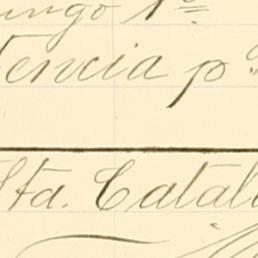 ingo 1º
tencia pª
Sta. Catal